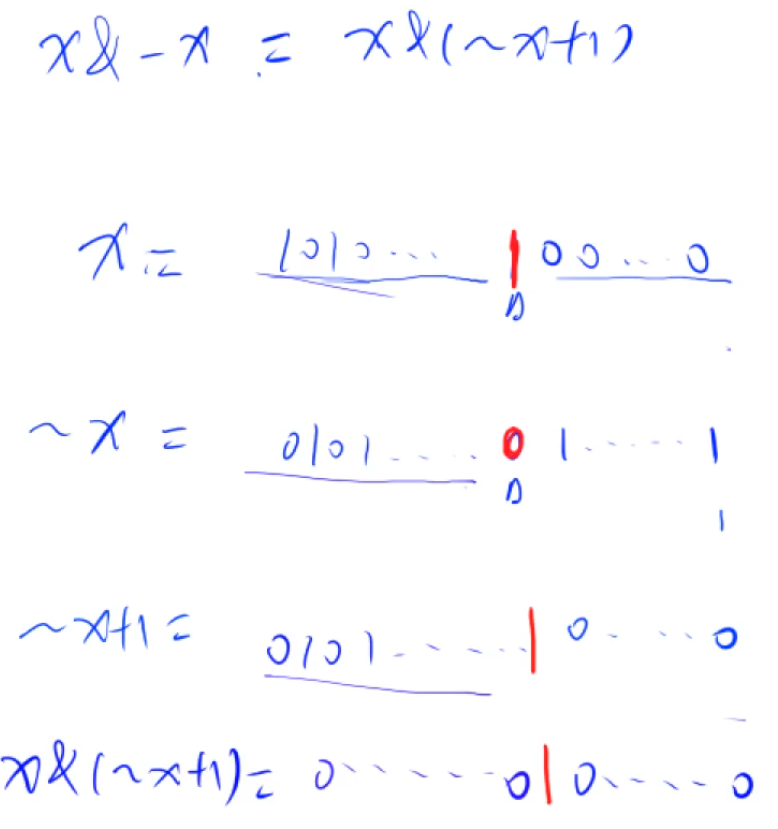 x&-x = x&(~x+1)
x = 1010... 100...0
~x = 0101.....01.....1
1
~x+1 = 0101......10....0
x&(~x+1)= 0.....010....0